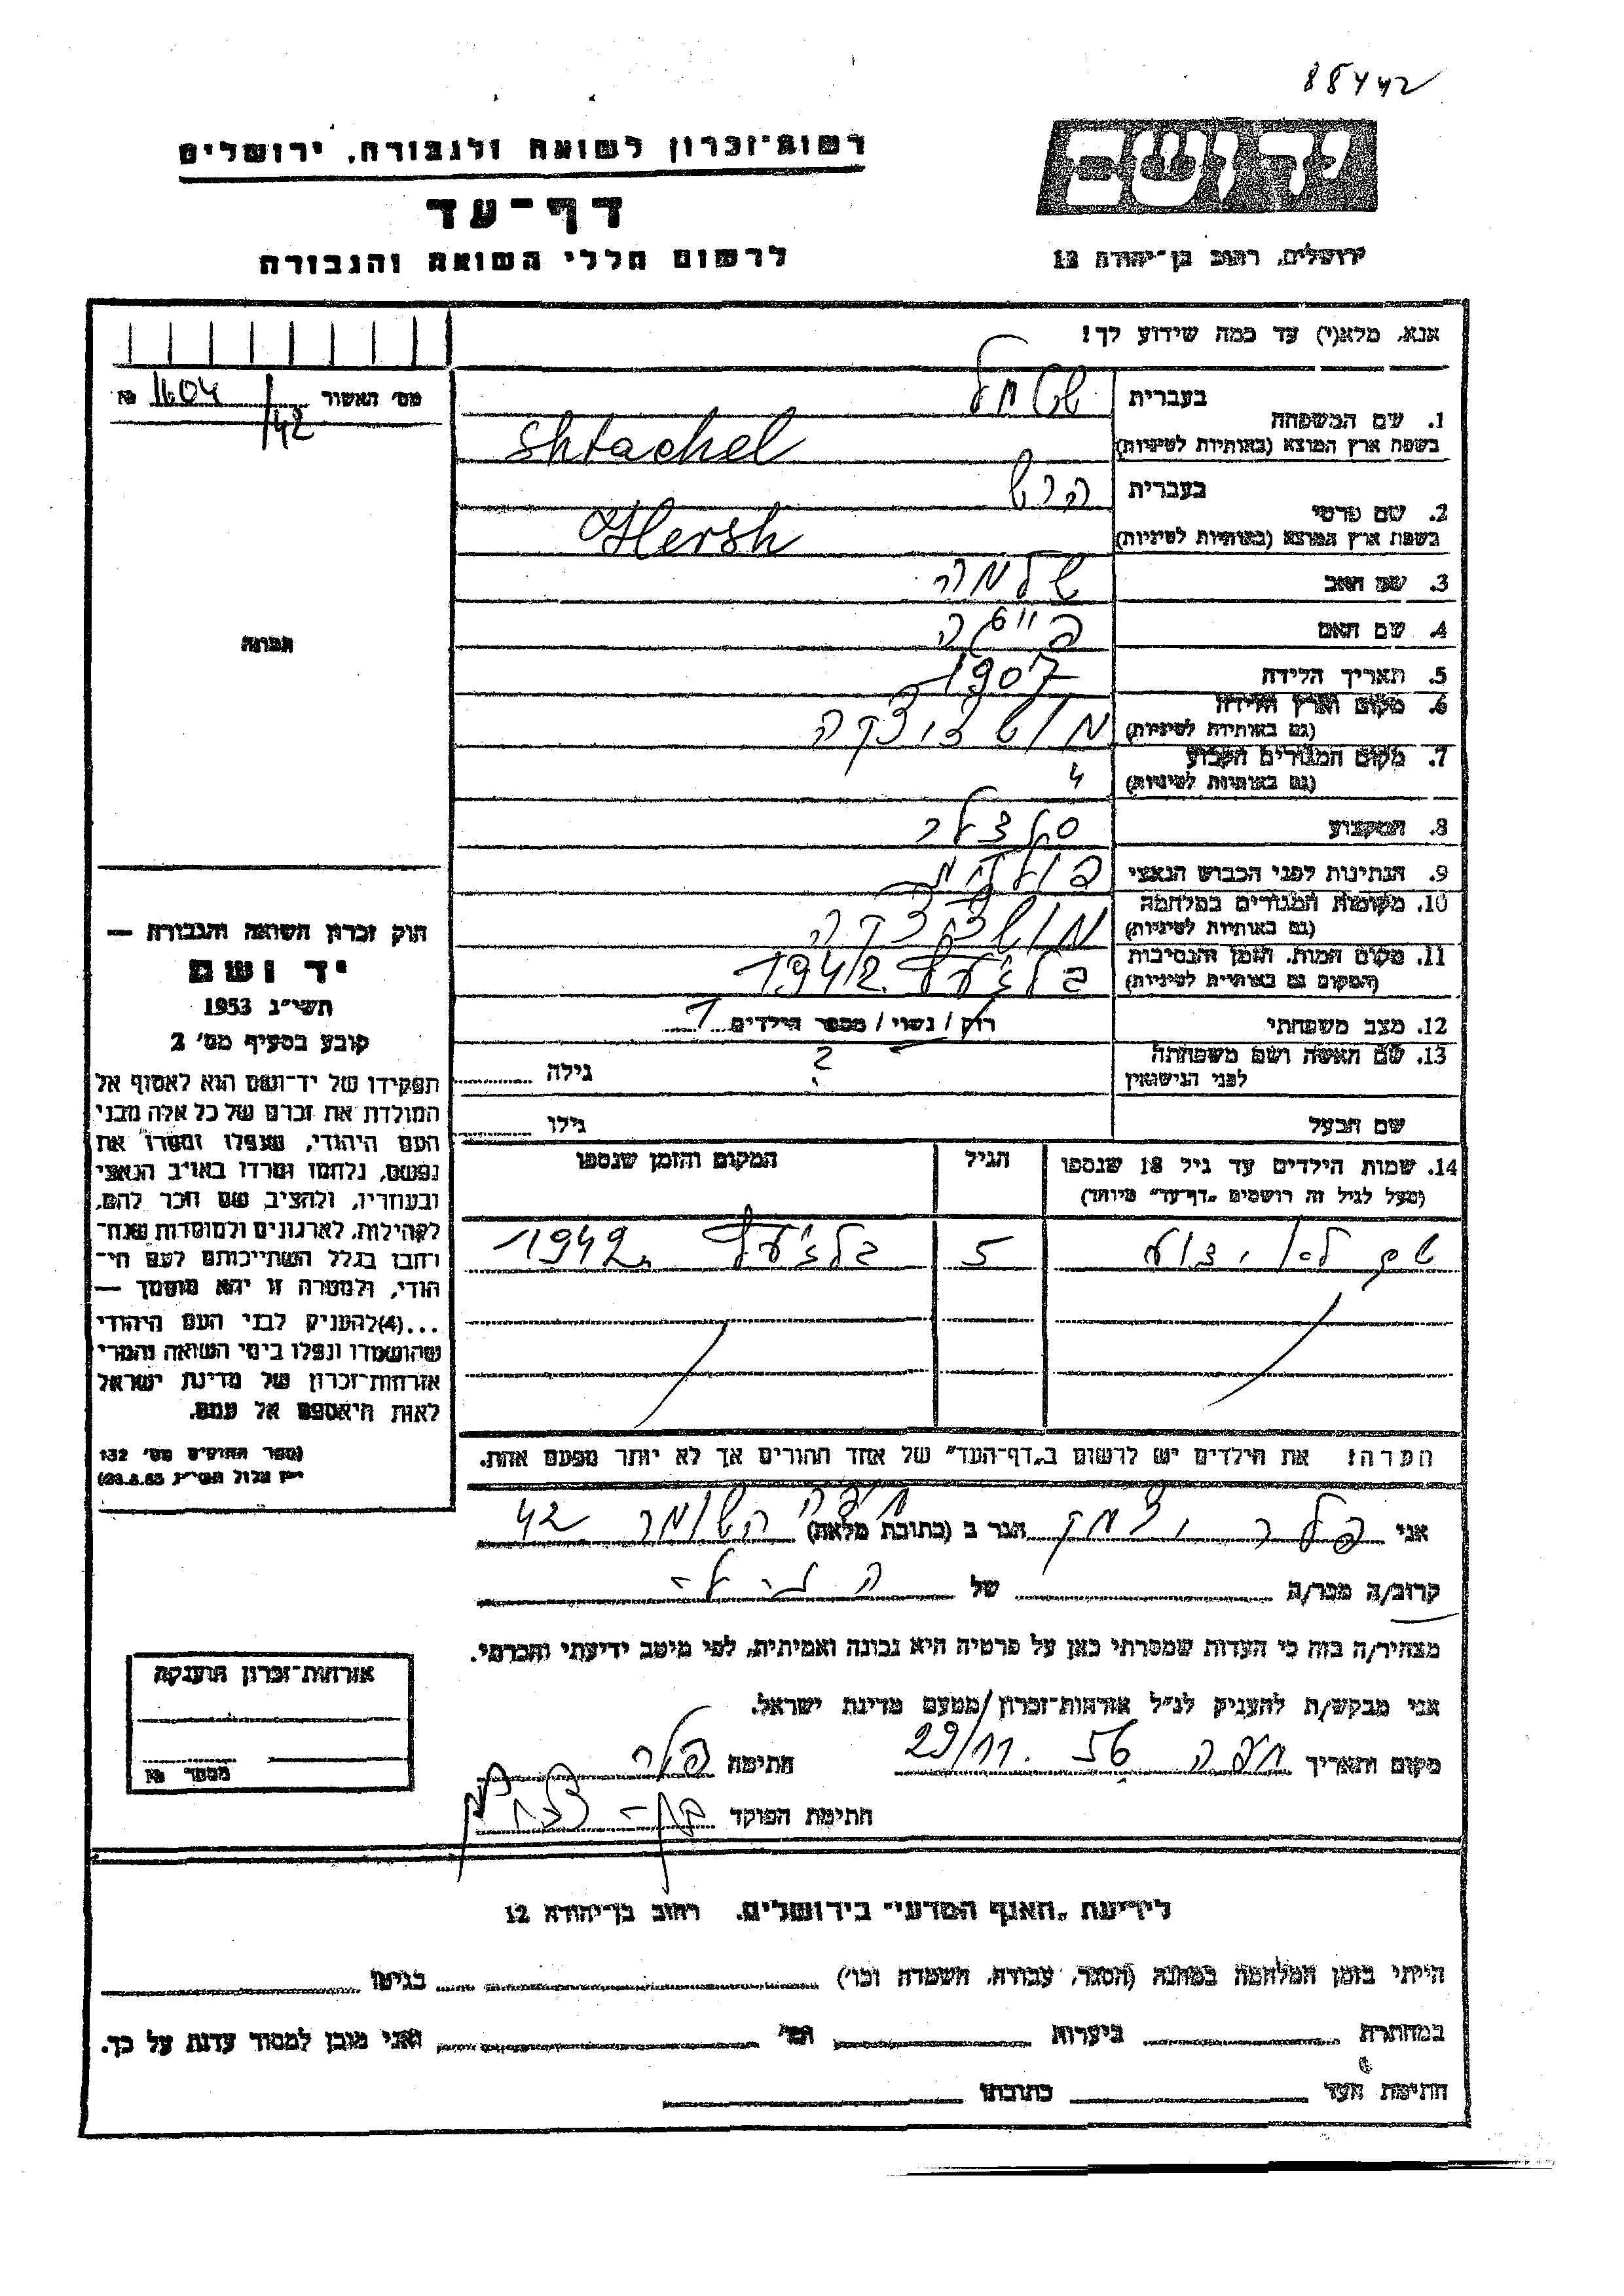 88442
רשות-זכרון לשואה ולגבורה, ירושלים
יד ושם
דף-עד
לרשום חללי השואה והגבורה
ירושלים, רחוב בן-יהודה 12
אנא, מלא(י) עד כמה שידוע לך!
מס׳ האשור 1604/42 №
בעברית שטחל
1. שם המשפחה
בשפת ארץ המוצא (באותיות לטיניות) Shtachel
בעברית הרש
2. שם פרטי
בשפת ארץ המוצא (באותיות לטיניות) Hersh
3. שם האב שלמה
4. שם האם
תמונה
5. תאריך הלידה 1907
6. מקום וארץ הלידה
(גם באותיות לטיניות)
7. מקום המגורים הקבוע
(גם באותיות לטיניות)
8. המקצוע
9. הנתינות לפני הכבוש הנאצי
10. מקומות המגורים במלחמה
(גם באותיות לטיניות)
11. מקום המות, הזמן והנסיבות בלז׳עץ 1942
(המקום גם באותיות לטיניות)
12. מצב משפחתי רוק / נשוי / מספר הילדים 1
13. שם האשה ושם משפחתה ? גילה
לפני הנישואין
שם הבעל גילו
14. שמות הילדים עד גיל 18 שנספו הגיל המקום והזמן שנספו
(מעל לגיל זה רושמים „דף-עד" מיוחד)
5 בלז׳עץ 1942
הערה: את הילדים יש לרשום ב„דף-העד" של אחד ההורים אך לא יותר מפעם אחת.
חוק זכרון השואה והגבורה —
יד ושם
תשי״ג 1953
קובע בסעיף מס׳ 2
תפקידו של יד-ושם הוא לאסוף אל
המולדת את זכרם של כל אלה מבני
העם היהודי, שנפלו ומסרו את
נפשם, נלחמו ומרדו באויב הנאצי
ובעוזריו, ולהציב שם וזכר להם,
לקהילות, לארגונים ולמוסדות שנח-
רבו בגלל השתייכותם לעם הי-
הודי, ולמטרה זו יהא מוסמך —
...(4) להעניק לבני העם היהודי
שהושמדו ונפלו בימי השואה והמרי
אזרחות-זכרון של מדינת ישראל
לאות היאספם אל עמם.
(ספר החוקים מס׳ 132
אני הגר ב (כתובת מלאה) חיפה השומר 42
קרוב/ה מכר/ה של
מצהיר/ה בזה כי העדות שמסרתי כאן על פרטיה היא נכונה ואמיתית, לפי מיטב ידיעתי והכרתי.
אני מבקש/ת להעניק לנ״ל אזרחות-זכרון מטעם מדינת ישראל.
מקום ותאריך חיפה 29/11. 56 חתימה
חתימת הפוקד
אזרחות-זכרון הוענקה
מספר №
לידיעת „האגף המדעי" בירושלים. רחוב בן-יהודה 12
הייתי בזמן המלחמה במחנה (הסגר, עבודה, השמדה וכו׳) בגיטו
במחתרת ביערות וכו׳ ואני מוכן למסור עדות על כך.
חתימת העד כתובתו